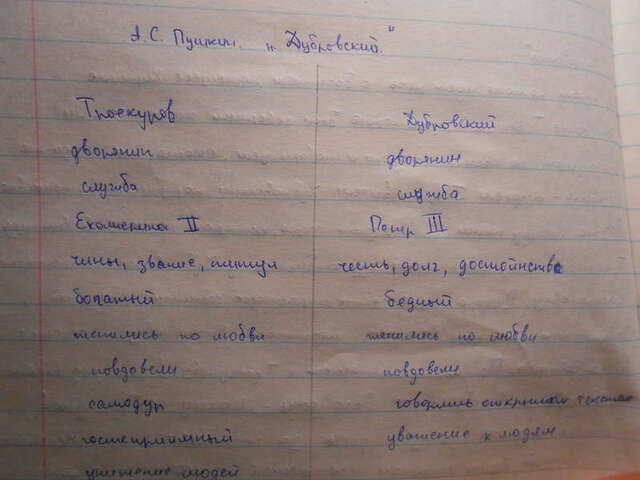 А.С. Пушкин. "Дубровский"
Троекуров
Дубровский
дворянин
дворянин
служба
служба
Екатерина II
Петр III
чины, звание, титул
честь, долг, достоинство
богатый
бедный
женились по любви
женились по любви
повдовели
повдовели
самодур
говорить открытым текстом
гостеприимный
уважение к людям
унижение людей